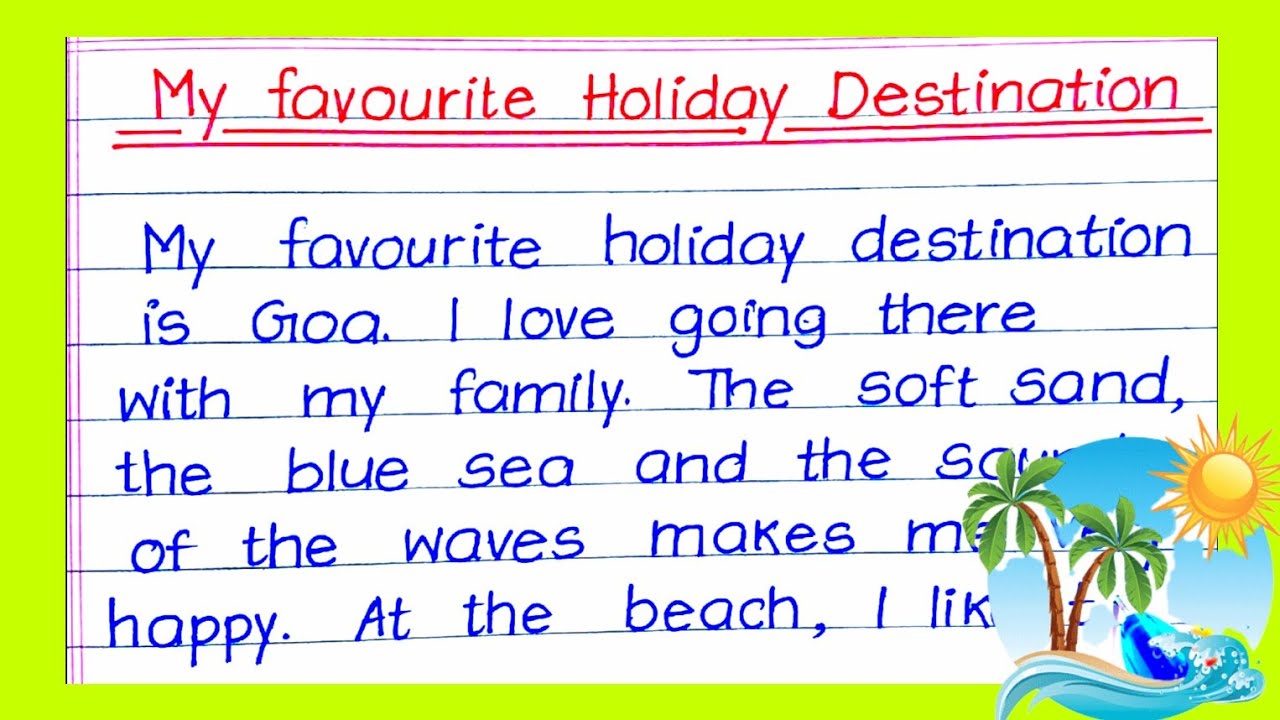 My favourite Holiday Destination
My favourite holiday destination
is Goa. I love going there
with my family. The soft sand,
the blue sea and the
of the waves makes
happy. At the beach, I